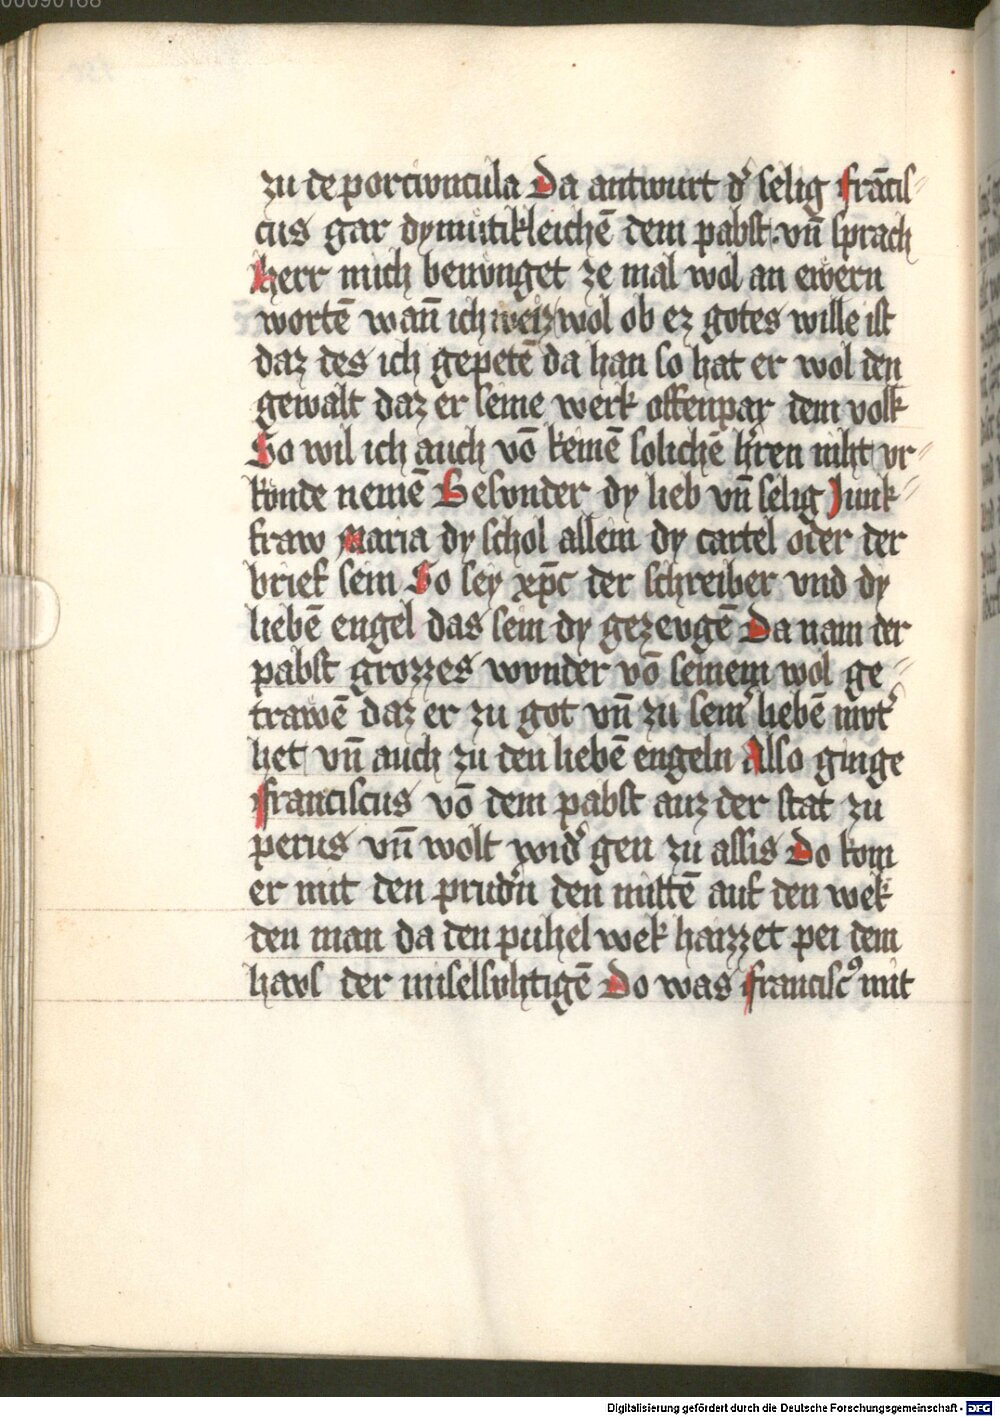 00090168
zu de porciuncula Da antwurt d᷑ selig franciſ⸗
cus gar dymutikleichē dem pabst · vn̄ sprach
herr mich benvnget ze mal wol an ewern
wortē wan̄ ich weiz wol ob ez gotes wille ist
daz des ich gepetē da han so hat er wol den
gewalt daz er seine werk offenpar dem volk
So wil ich auch vō keinē solichē h᷑ren niht vr⸗
kunde nemē Besvnder dy lieb vn̄ selig Junk⸗
fraw maria dy schol allein dy cartel oder der
brief sein So sey xp̄c der schreiber vnd dy
liebē engel das sein dy gezevgē Da nam der
pabst grozzes wvnder vō seinem wol ge⸗
trawē daz er zu got vn̄ zu sein᷑ liebē mvt᷑
het vn̄ auch zu den liebē engeln Also ginge
franciscus vō dem pabst auz der stat zu
perus vn̄ wolt wid᷑ gen zu assis Do kom
er mit den prud᷑n den mittē auf den wek
den man da den puhel wek haizzet pei dem
havs der miselsvhtigē Do was francisc⁹ mit
Digitalisierung gefördert durch die Deutsche Forschungsgemeinschaft - DFG